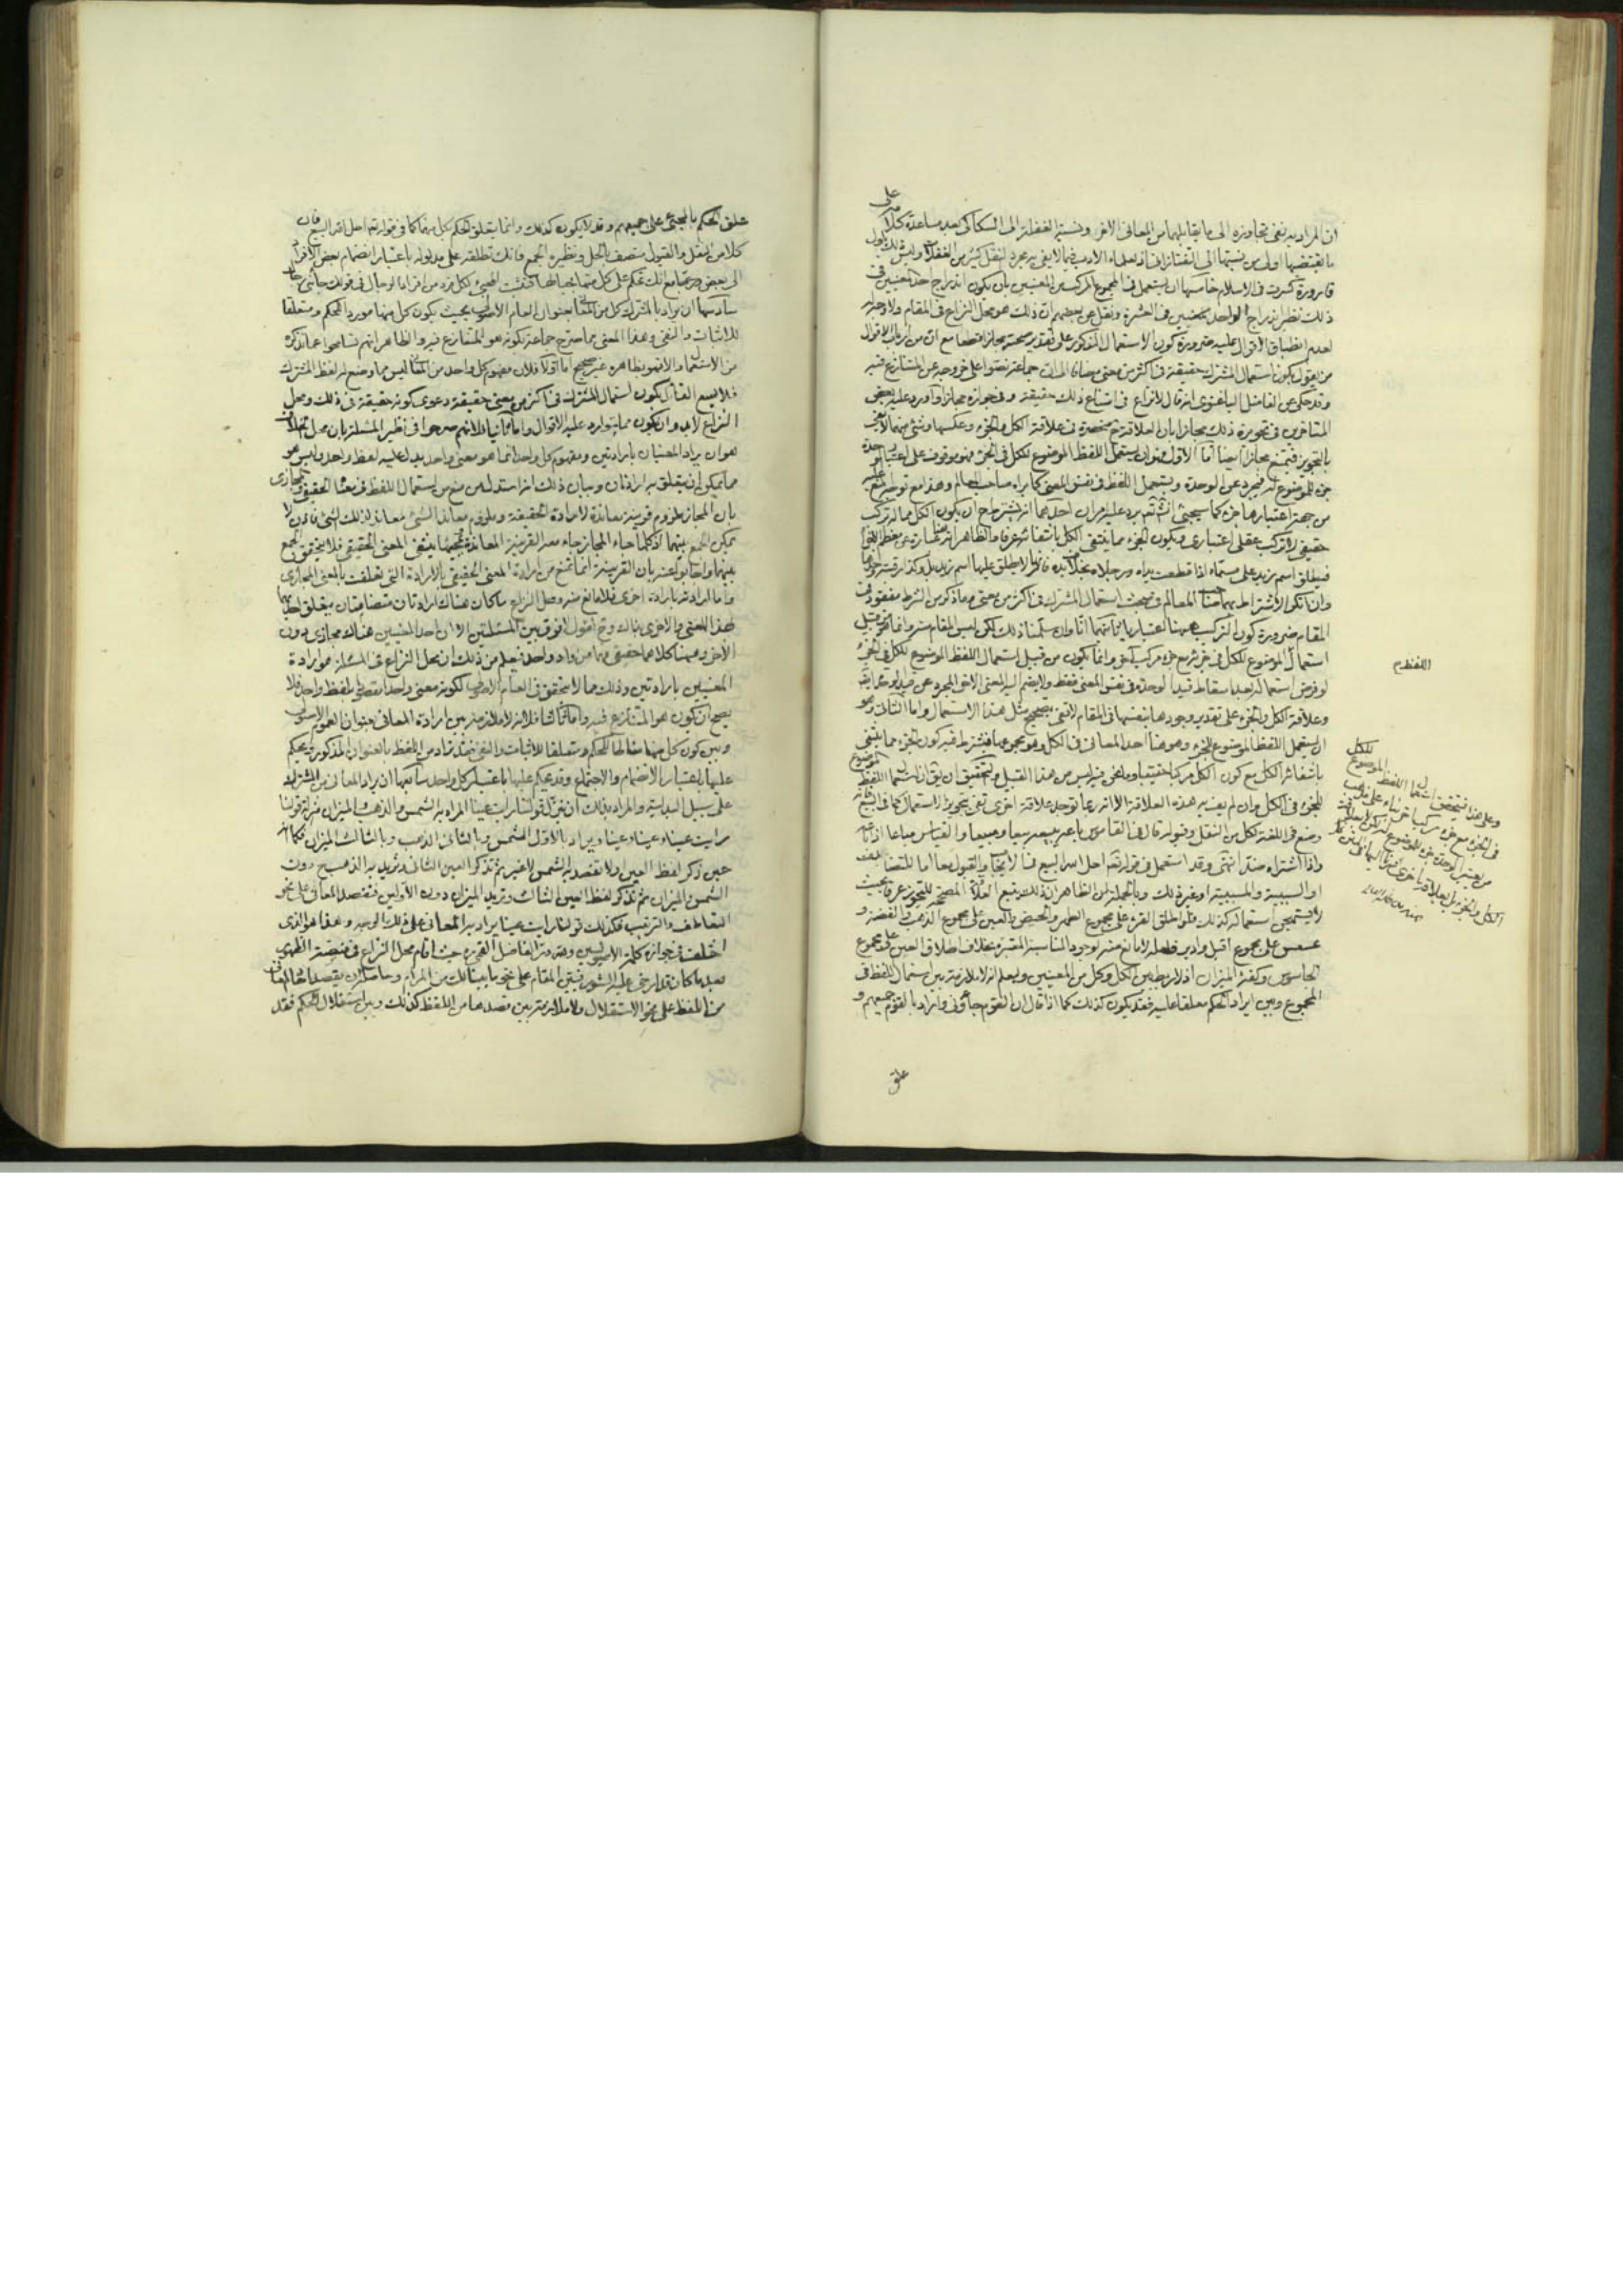 ان المراد به نفي تجاوزه الى ما يقابلهما من المعاني الاخر ونسبة الغفلة الى السكاكي بعد مساعدة كلامه على
ما يقتضيها اولى من نسبتها الى التفتازاني
قارورة كسرت في الاسلام خامسها ان يستعمل في المجموع المركب من المعنيين بان يكون اندراج احد المعنيين في
ذلك نظير اندراج الواحد في العشرة ونقل عن بعضهم ان ذلك هو محل النزاع في المقام ولا وجه له
لعدم انطباق الاقوال عليه ضرورة كون الاستعمال المذكور على تقدير صحته مجازا قطعا مع ان من ارباب الاقوال
من يقول بكون استعمال المشترك حقيقة في اكثر من معنى مضافا الى ان جماعة نصوا على خروجه عن المتنازع فيه
وقد حكي عن الفاضل الباغنوي انه قال لا نزاع في امتناع ذلك حقيقة وفي جوازه مجازا واورد عليه بعض
المتاخرين في تجويزه ذلك مجازا بان العلاقة ح منحصرة في علاقة الكل والجزء وعكسها وشيء منهما لا يفي
بالتجويز فيمتنع مجازا ايضا اما الاول فهو ان يستعمل اللفظ الموضوع للكل في الجزء فهو موقوف على اعتبار الوحدة
جزء للموضوع له فيجرد عن الوحدة ويستعمل اللفظ في نفس المعنى كما يراه صاحب المعالم وهذا مع
من جهة اعتبارها جزء كما سيجيء انش تع يرد عليه امران احدهما انه يشترط ان يكون الكل مما له تركب
حقيقي لا تركب عقلي اعتباري ويكون الجزء مما ينتفي الكل بانتفائه عرفا
فيطلق اسم زيد على مسماه اذا قطعت يداه ورجلاه بخلاف
وان انكر الاشتراط بهما صاحب المعالم في مبحث استعمال المشترك في اكثر من معنى وما ذكر من الشرط مفقود في
المقام ضرورة كون التركيب ههنا اعتباريا ثانيهما انا وان سلمنا ذلك لكن ليس المقام منه وانما هو من قبيل
استعمال الموضوع للكل في جزئه مع جزء مركب آخر وانما يكون من قبيل استعمال اللفظ الموضوع للكل في الجزء
لو فرض استعماله بعد اسقاط قيد الوحدة في نفس المعنى فقط ولا يضم اليه المعنى الاخر المجرد عن قيد الوحدة ايضا
وعلاقة الكل والجزء على تقدير وجودها بنفسها في المقام لا تفي بتصحيح مثل هذا الاستعمال واما الثاني وهو
ان يستعمل اللفظ الموضوع للجزء وهو هنا احد المعاني في الكل وهو مجموعها فيشترط فيه كون الجزء مما ينتفي
بانتفائه الكل مع كون الكل مركبا حقيقيا وما نحن فيه ليس من هذا القبيل والتحقيق ان يق ان استعمال اللفظ الموضوع
للجزء في الكل وان لم يف به هذه العلاقة الا انه ربما توجد علاقة اخرى تفي بتجويز الاستعمال كما في البيع فانه
وضع في اللغة لكل من النقل وقبوله قال في القاموس باعه يبيعه بيعا ومبيعا والقياس مباعا اذا باعه
واذا اشتراه ضد انتهى وقد استعمل في قوله تع احل الله البيع في الايجاب والقبول معا اما للتضايف
او السببية والمسببية او غير ذلك وبالجملة من الظاهر ان ذلك يتبع العلاقة المصححة للتجوز عرفا بحيث
لا يستهجن استعماله كذلك فلو اطلق القرء على مجموع الطهر والحيض والعين على مجموع الذهب والفضة و
عسعس على مجموع اقبل وادبر فلعله لا مانع منه لوجود المناسبة المعتبرة بخلاف اطلاق العين على مجموع
الجاسوس وكفة الميزان اذ لا ربط بين الكل وكل من المعنيين وليعلم انه لا ملازمة بين استعمال اللفظ في
المجموع وبين ايراد الحكم معلقا عليه فقد يكون كذلك كما اذا قال ان القوم جاؤني واراد بالقوم جميعهم و
علق
اللفظ م
وعلى هذا فيتحقق استعمال اللفظ الموضوع للكل
في الجزء مع جزء مركب آخر بناء على مذهب
من يعتبر الوحدة جزء للموضوع له
الكل والجزء بل بعلاقة اخرى
علق الحكم بالمجيء على جميعهم وقد لا يكون كذلك وانما يتعلق الحكم بكل منهما كما في قوله تع احل الله البيع فان
كلا من النقل والقبول متصف بالحل ونظيره الجمع فانك تطلقه على مدلوله باعتبار انضمام بعض الافراد
الى بعض ومع انك تحكم على كل منها فيثبت المجيء لكل فرد من افراد الرجال في قولك جاءني رجال
سادسها ان يراد بالمشترك كل من المعاني بعنوان العام الاصولي بحيث يكون كل منهما موردا للحكم ومتعلقا
للاثبات والنفي وهذا المعنى مما صرح جماعة بكونه هو المتنازع فيه والظاهر انهم تسامحوا
من الاستعمال والا فهو بظاهره غير صحيح اما اولا فلان مفهوم كل واحد من المعاني ليس مما وضع له لفظ المشترك
فلا يسع القائل بكون استعمال المشترك في اكثر من معنى حقيقة دعوى كونه حقيقة في ذلك ومحل
النزاع لا بد وان يكون مما يتوارد عليه الاقوال واما ثانيا فلانهم صرحوا في نظير المسئلة بان محل الخلاف
هو ان يراد المعنيان بارادتين ومفهوم كل واحد انما هو معنى واحد يدل عليه لفظ واحد وليس هو
مما يمكن ان يتعلق به ارادتان وبيان ذلك انه استدل من منع من استعمال اللفظ في معناه الحقيقي والمجازي
بان المجاز ملزوم قرينة معاندة لارادة الحقيقة وملزوم معاند الشيء معاند لذلك الشيء فاذن لا
يمكن الجمع بينهما اذ كلما جاء المجاز جاء معه القرينة المعاندة فبمجيئها ينتفي المعنى الحقيقي فلا يتحقق الجمع
بينهما واجابوا عنه بان القرينة انما تمنع من ارادة المعنى الحقيقي بالارادة التي تعلقت بالمعنى المجازي
واما ارادته بارادة اخرى فلا مانع منه ومحل النزاع ما كان هناك ارادتان متضامتان يتعلق احديهما
بهذا المعنى والاخرى بذاك وح اقول لا فرق بين المسئلتين الا ان احد المعنيين هناك مجازي دون
الآخر وههنا كلاهما حقيقي فهما من واد واحد فيعلم من ذلك ان محل النزاع في المسئلة هو ارادة
المعنيين بارادتين وذلك مما لا يتحقق في العام الاصولي لكونه معنى واحدا يقصد بلفظ واحد فلا
يصح ان يكون هو المتنازع فيه واما ثالثا فلانه لا ملازمة بين ارادة المعاني بعنوان العموم الاصولي
وبين كون كل منهما مناطا للحكم ومتعلقا للاثبات والنفي فقد تراد من اللفظ بالعنوان المذكور ويحكم
عليها باعتبار الانضمام والاجتماع وقد يحكم عليها باعتبار كل واحد سابعها ان يراد المعاني من المشترك
على سبيل البدلية والمراد بذلك ان ننزل قولنا رايت عينا المراد به الشمس والذهب والميزان منزلة قولنا
رايت عينا وعينا وعينا ويراد بالاول الشمس وبالثاني الذهب وبالثالث الميزان فكما انه
حين ذكر لفظ العين اولا نقصد به الشمس لا غير ثم نذكر العين الثاني ونريد به الذهب دون
الشمس والميزان ثم نذكر لفظ العين الثالث ونريد الميزان دون الاولين فنقصد المعاني على نحو
التعاطف والترتيب فكذلك قولنا رايت عينا يراد به المعاني على ذلك الوجه وهذا هو الذي
اختلف في جوازه كلمة الاصوليين
بعد ما كان قد ارخي عليه الستور فتبين المقام على نحو ما بينالك من المرام وحاصله ان يقصد المعاني
من اللفظ على نحو الاستقلال ولا ملازمة بين قصدها من اللفظ كذلك وبين استقلال الحكم فقد